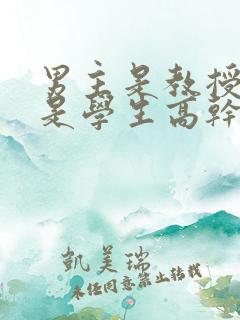 男主是教授
是學生高幹
凱美瑞
未經同意禁止轉載